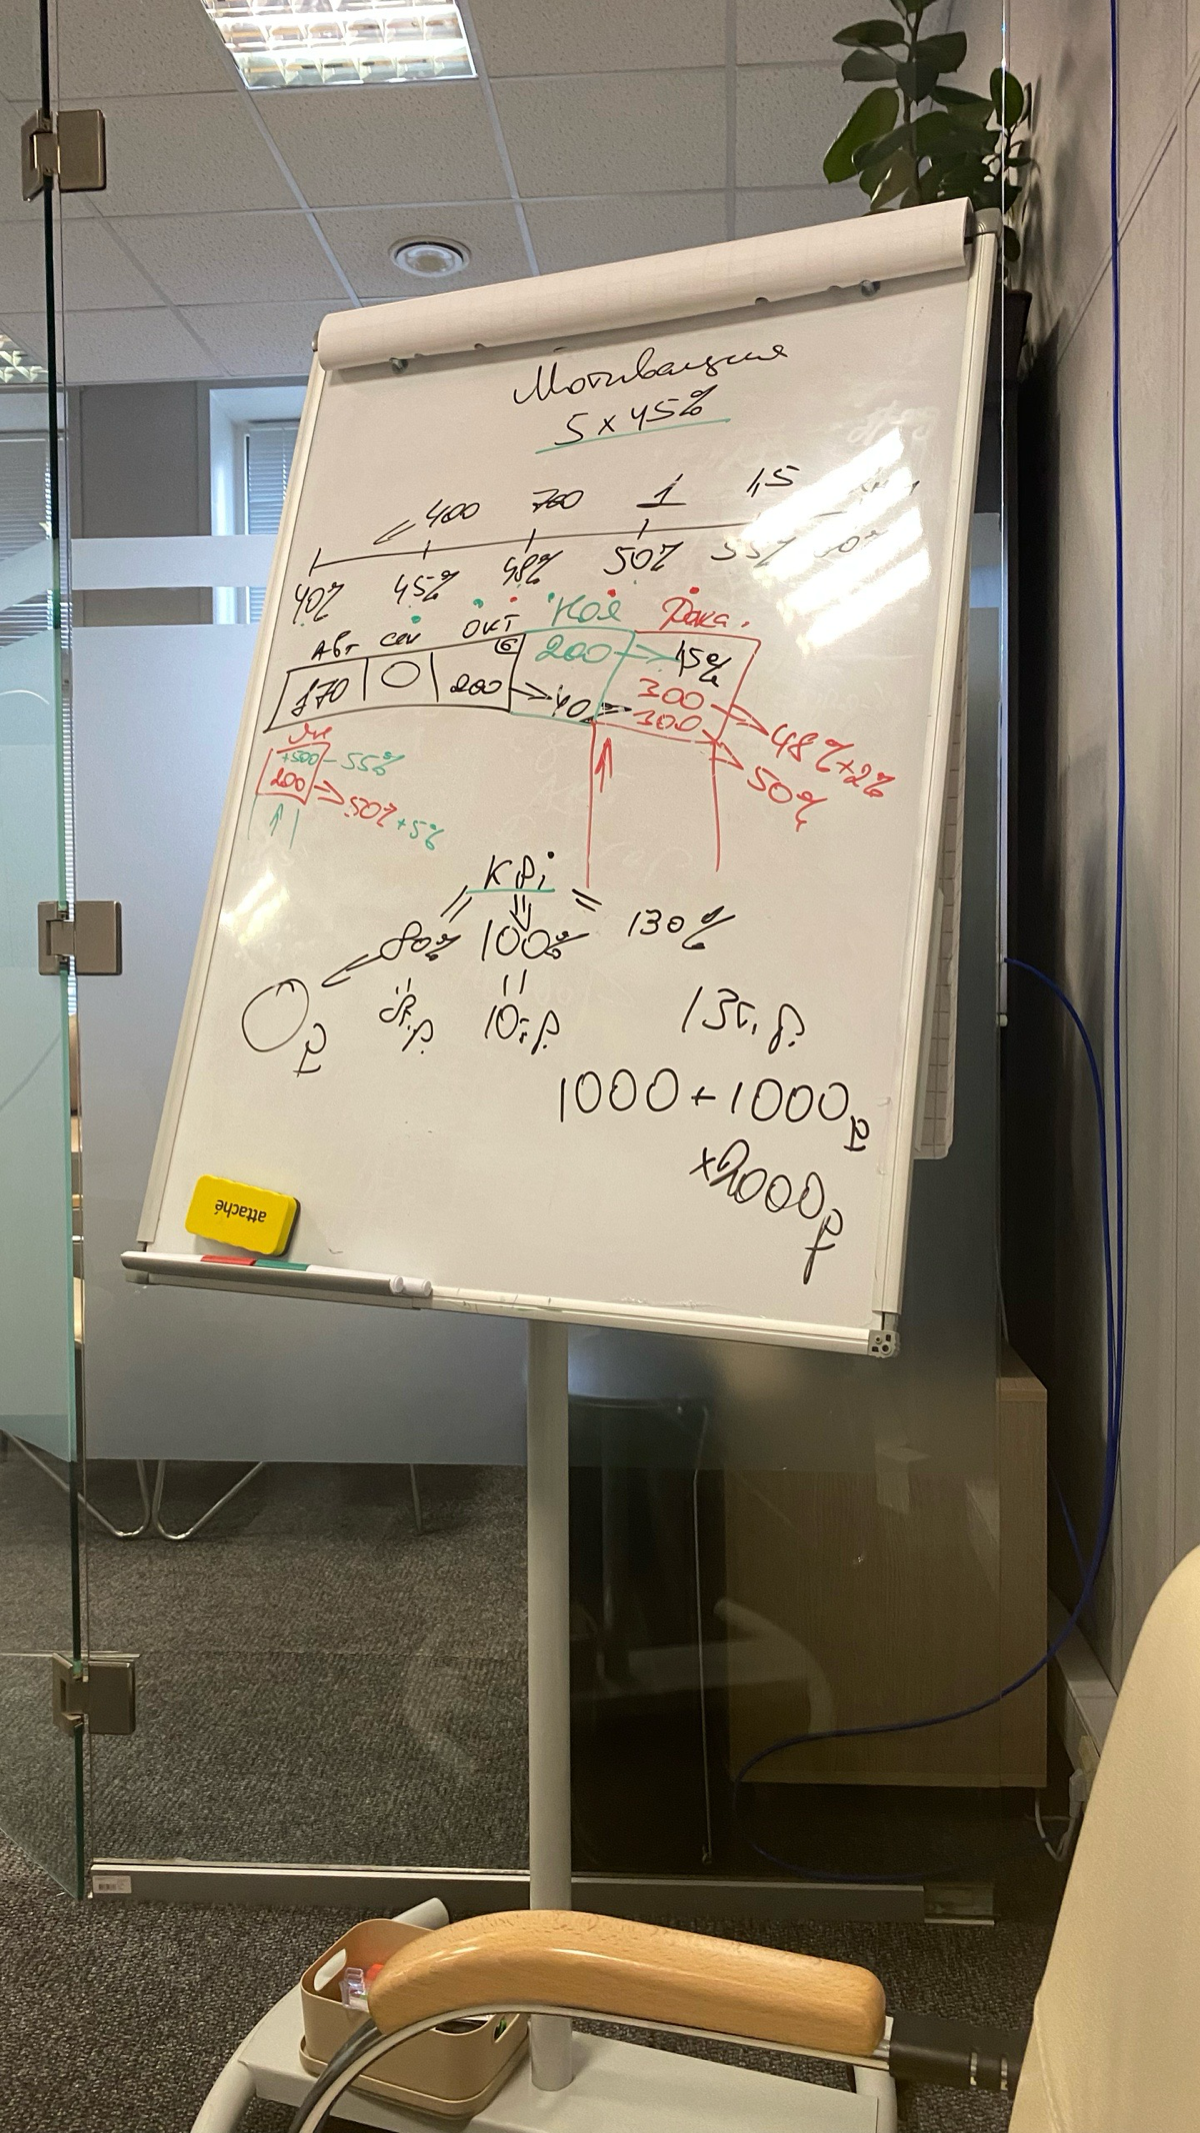 Мотивация
5 x 45%
400 700 1 1,5
40% 45% 48% 50% 55% 60%
Авг сен окт Ноя Дека.
170 0 200 6 200 45%
40 300 48%+2%
300 50%
Ян
+500 - 55%
200 50% +5%
KPi
80% 100% 130%
0 р 8т.р. 10т.р. 13т.р.
1000 + 1000р
x2000р
attaché